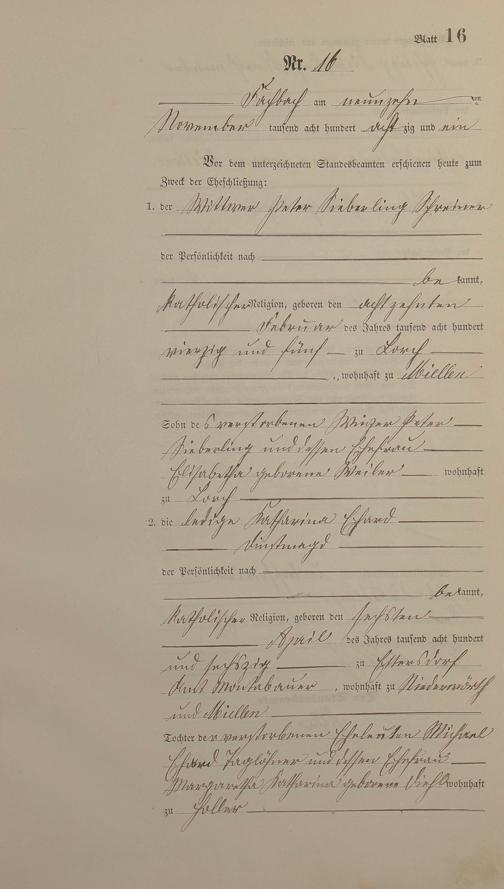 Blatt 16
Nr. 16
Fachbach am neunzehn ten
November tausend acht hundert acht zig und ein
Vor dem unterzeichneten Standesbeamten erschienen heute zum
Zweck der Eheschließung:
1. der Wittwer Peter Sieberling Schreiner
der Persönlichkeit nach
be kannt,
katholischer Religion, geboren den achtzehnten
Februar des Jahres tausend acht hundert
vierzig und fünf zu Lorch
, wohnhaft zu Miellen
Sohn des verstorbenen Winzer Peter
Sieberling und dessen Ehefrau
Elisabetha geborene Weiler wohnhaft
zu Lorch
2. die ledige Katharina Ehard
Dinstmagd
der Persönlichkeit nach
be kannt,
katholischer Religion, geboren den sechsten
April des Jahres tausend acht hundert
und sechszig zu Ettersdorf
Amt Montabauer , wohnhaft zu Niederwörth
und Miellen
Tochter der verstorbenen Eheleuten Michael
Ehard Taglöhner und dessen Ehefrau
Margaretha Katharina geborene wohnhaft
zu Holler